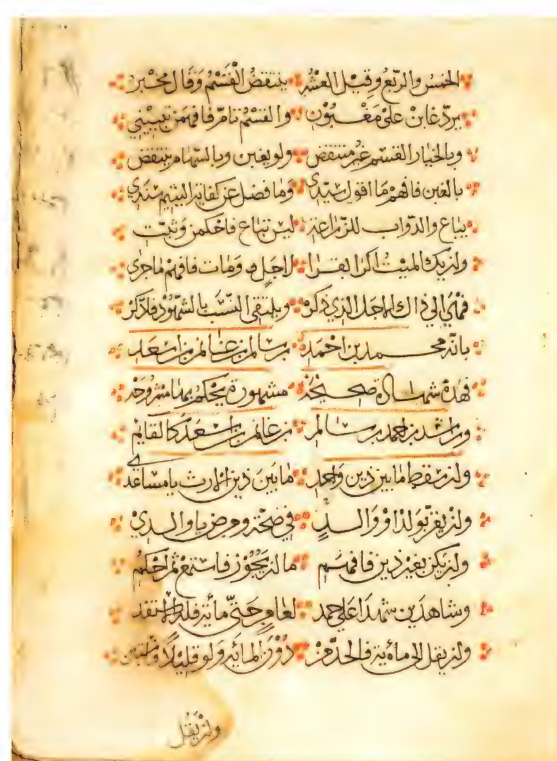 الخمس والربع وقيل العشر ينتقض القسم وقال مخبر
يرد غابن على مغبون والقسم تام فافهمن تبييني
وبالخيار القسم غير منتقض ولو بغبن وبالسهام ينتقض
بالغبن فافهم ما اقول سيدي وما فضل عن كفاية اليتيم
يباع والدواب للزراعة ليس تباع فاحكمن وثبت
ولن يك الميت اكر القرا لاجل ومات فافهم ما جرى
فهي الى ذاك الاجل الذي ذكر ويلتقي النسب بالشهود فادكر
بانه محمد بن احمد بن سالم بن غانم بن اسعد
فهذه شهادة صحيحة مشهورة يحكم بها مشروحة
وراشد بن احمد بن سالم بن غانم بن اسعد كالقايم
ولن يسقط ما بين ذين واحد ما بين ذين الارث يا مساعدي
ولن يقر بولد او والد في صحة ومرض يا والدي
ولن يكن بغير ذين فافهم ما لن يجوز فاستمع ثم احكم
وشاهدين شهدا على حمد لعامر حتى مائة فلا
ولن يقل الى مائة في الحد عن دون المائه ولو قليلا
ولن يقل